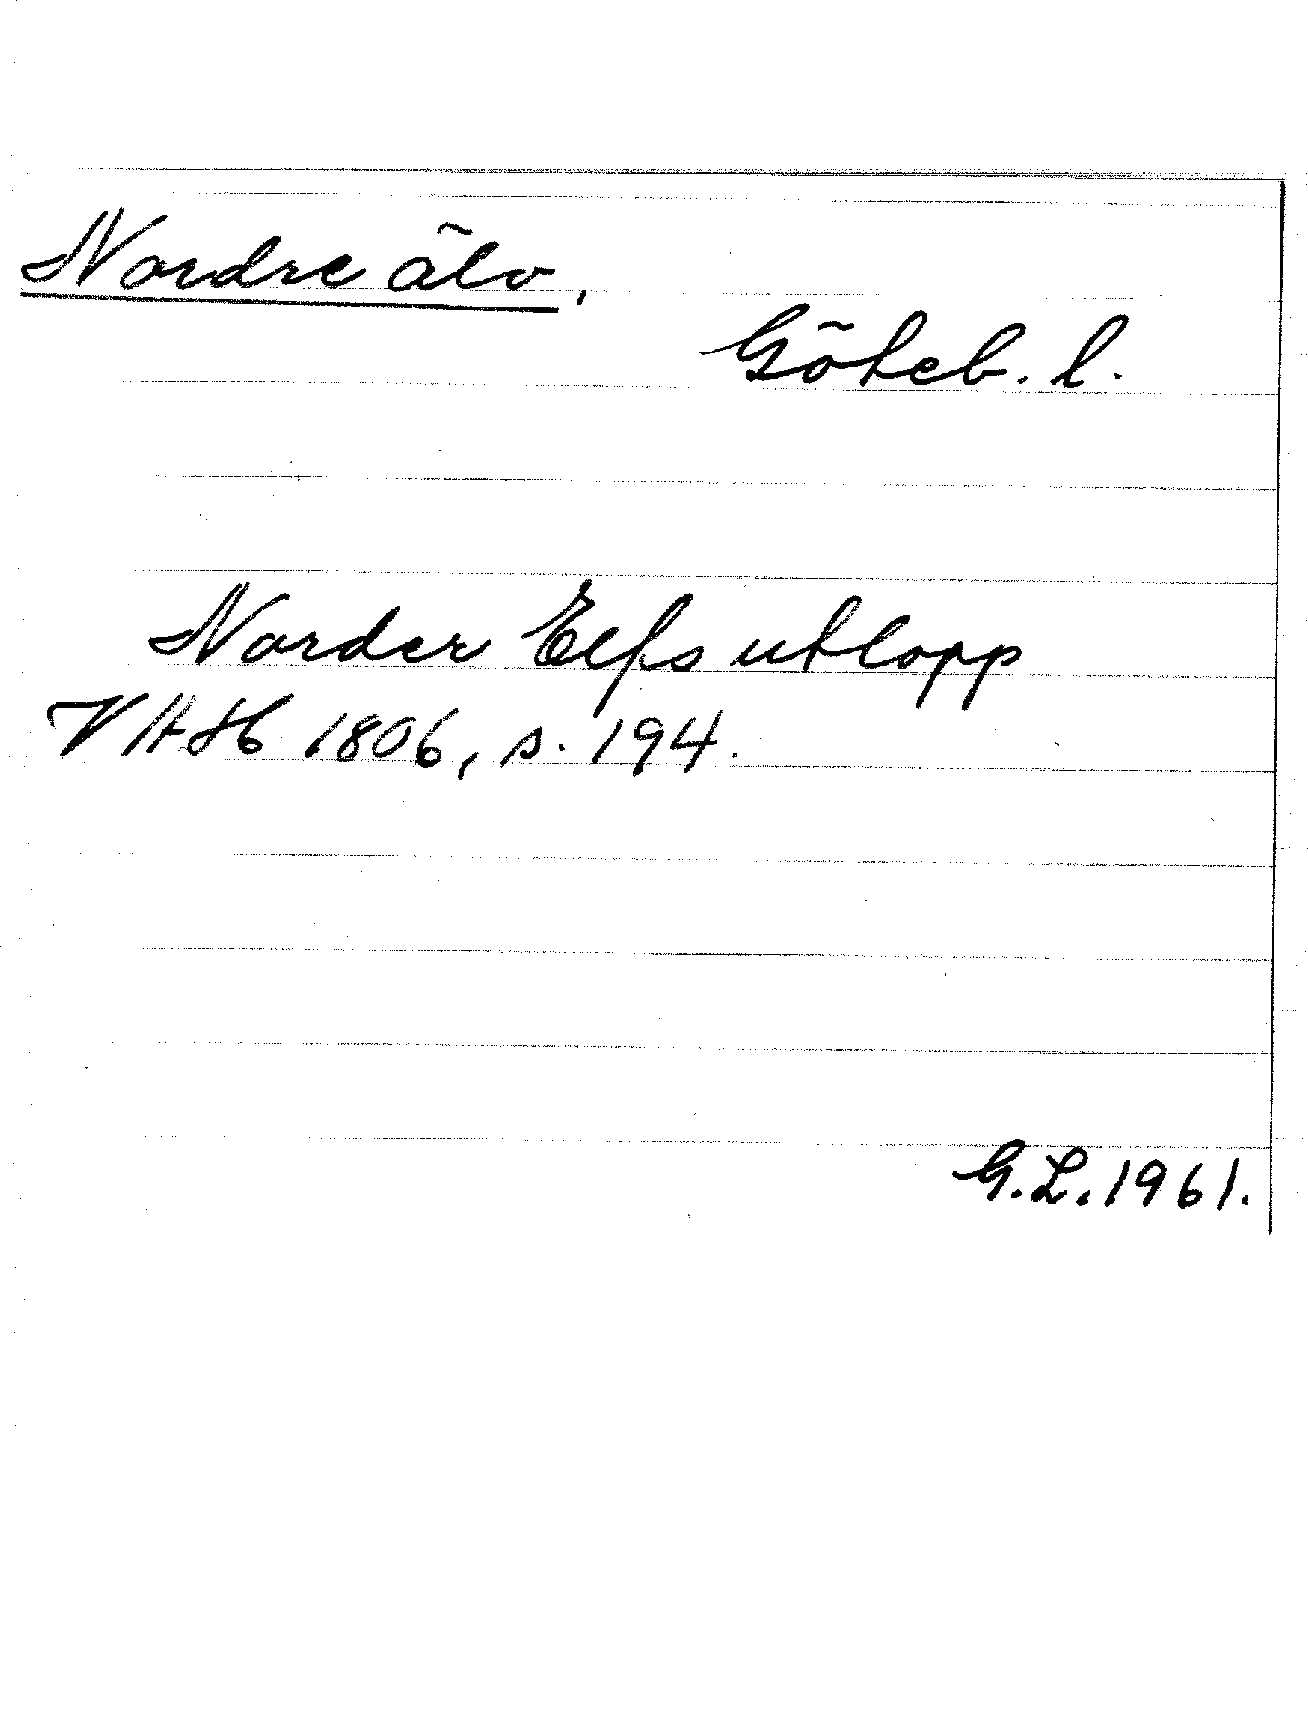 Nordre älv,
Göteb. l.
Norder Elfs utlopp
VAH 1806, s. 194.
G.L. 1961.